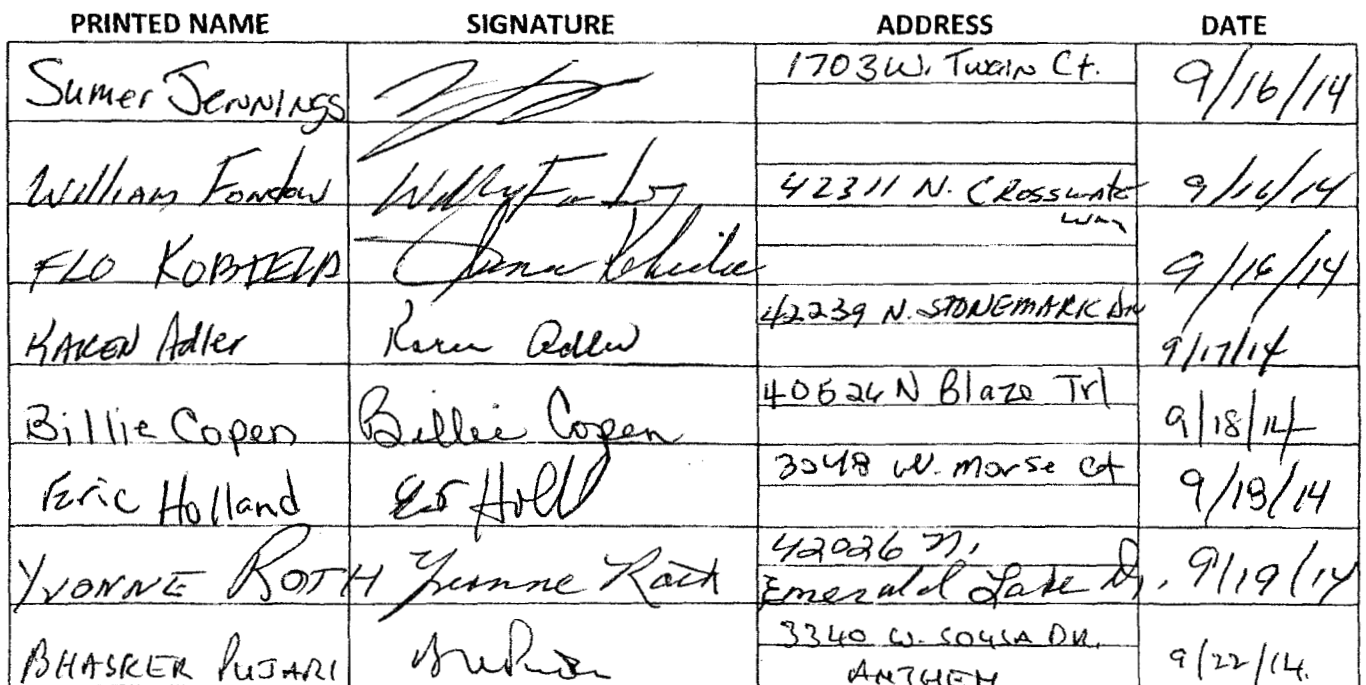 PRINTED NAME SIGNATURE ADDRESS DATE
Sumer Jennings 1703 W. Twain Ct. 9/16/14
William Fondow 42311 N. Crosswater Way 9/16/14
FLO KOBIELA 9/16/14
KAREN Adler Karen Adler 42239 N. STONEMARK DR 9/17/14
Billie Copen Billie Copen 40526 N Blaze Trl 9/18/14
Eric Holland 3048 W. Morse Ct 9/18/14
YVONNE ROTH Yvonne Roth 42026 N. 9/19/14
Emerald Lake Dr.
BHASKER PUJARI 3340 W. SOUSA DR. 9/22/14.
ANTHEM